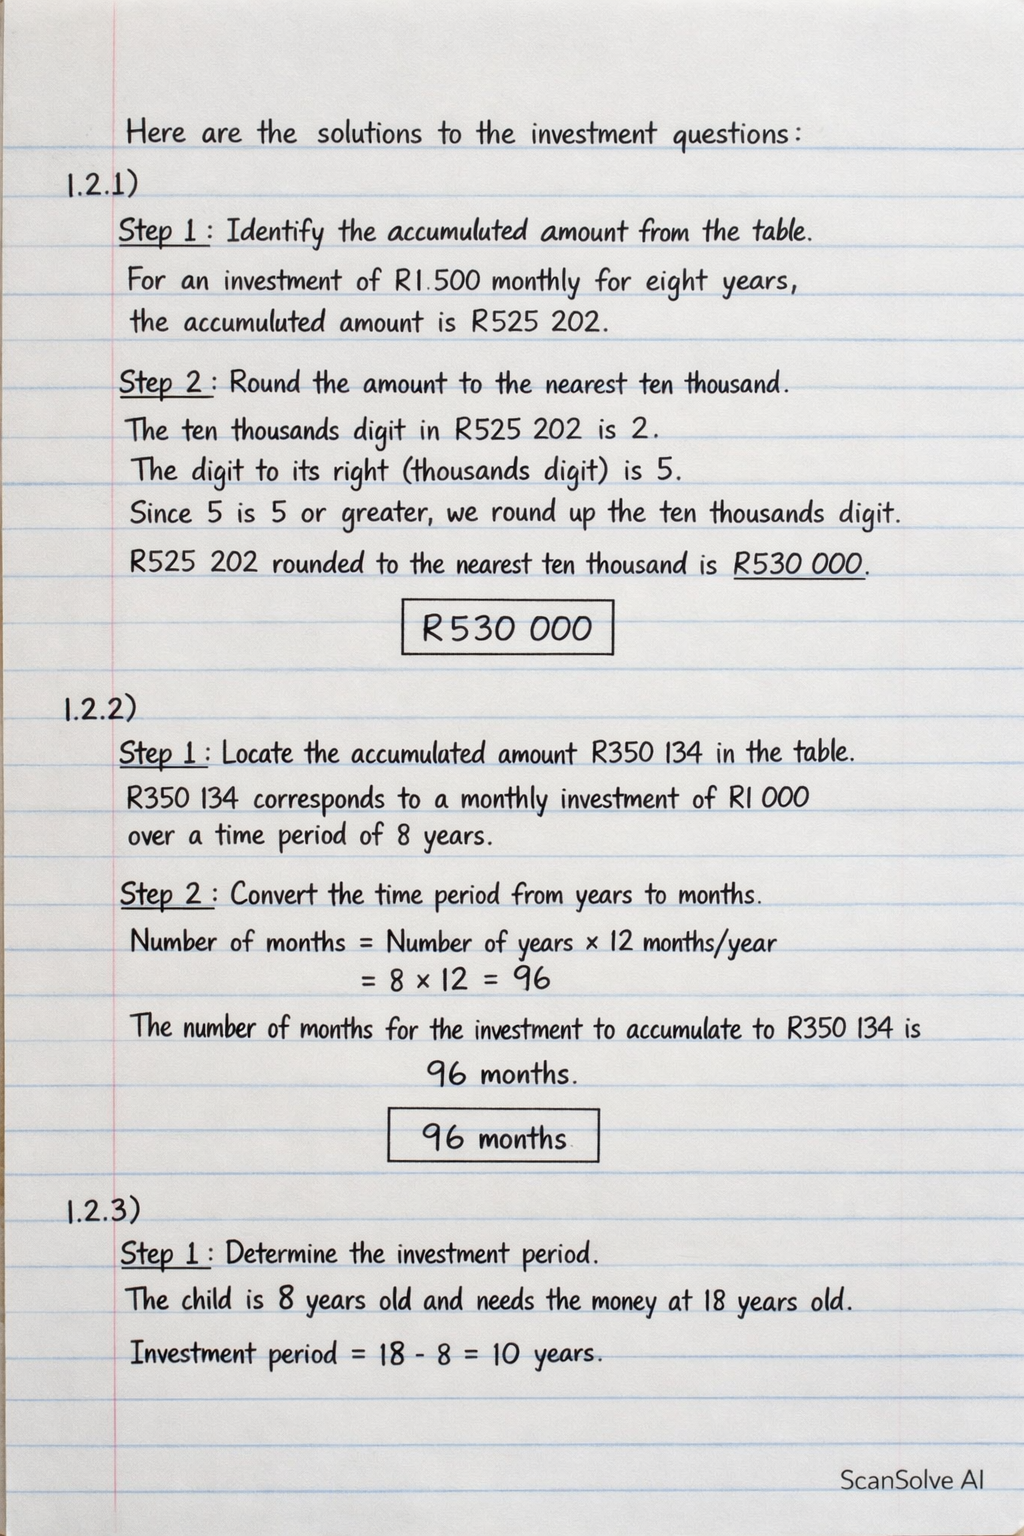 Here are the solutions to the investment questions:
1.2.1)
Step 1: Identify the accumuluted amount from the table.
For an investment of R1.500 monthly for eight years,
the accumuluted amount is R525 202.
Step 2: Round the amount to the nearest ten thousand.
The ten thousands digit in R525 202 is 2.
The digit to its right (thousands digit) is 5.
Since 5 is 5 or greater, we round up the ten thousands digit.
R525 202 rounded to the nearest ten thousand is R530 000.
R530 000
1.2.2)
Step 1: Locate the accumulated amount R350 134 in the table.
R350 134 corresponds to a monthly investment of R1 000
over a time period of 8 years.
Step 2: Convert the time period from years to months.
Number of months = Number of years × 12 months/year
= 8 × 12 = 96
The number of months for the investment to accumulate to R350 134 is
96 months.
96 months
1.2.3)
Step 1: Determine the investment period.
The child is 8 years old and needs the money at 18 years old.
Investment period = 18 - 8 = 10 years.
ScanSolve AI